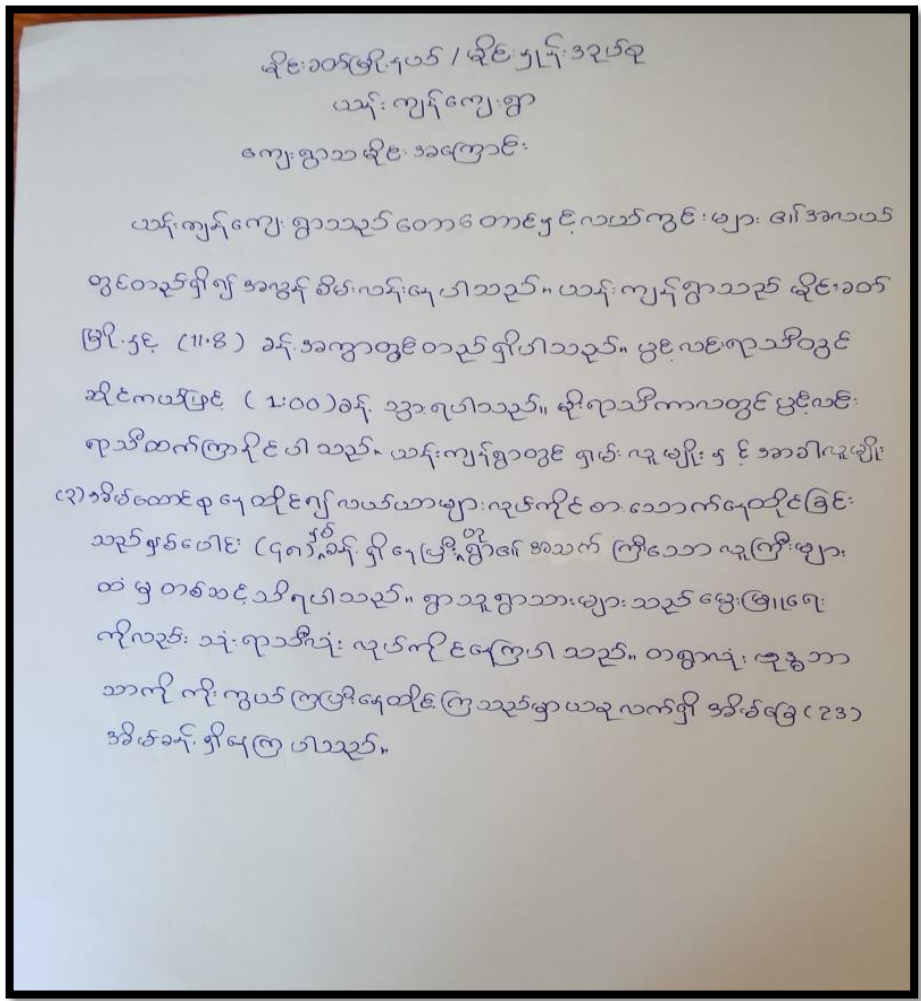 မိုင်းခတ်မြို့နယ် / မိုင်းနှုန်းအုပ်စု
ယန်းကျန်ကျေးရွာ
ကျေးရွာသမိုင်းအကြောင်း
ယန်းကျန်ကျေးရွာသည် တောတောင်နှင့်လယ်ကွင်းများ ၏အလယ်
တွင်တည်ရှိ၍ အလွန်စိမ်းလန်းနေပါသည်။ ယန်းကျန်ရွာသည် မိုင်းခတ်
မြို့နှင့် (11.8) ခန့်အကွာတွင်တည်ရှိပါသည်။ ပွင့်လင်းရာသီတွင်
ဆိုင်ကယ်ဖြင့် (1:00)ခန့် သွားရပါသည်။ မိုးရာသီကာလတွင် ပွင့်လင်း
ရာသီထက်ကြာနိုင်ပါသည်။ ယန်းကျန်ရွာတွင် ရှမ်းလူမျိုးနှင့် အာခါလူမျိုး
(၃)အိမ်ထောင်စုနေထိုင်၍ လယ်ယာများလုပ်ကိုင်စားသောက်နေထိုင်ခြင်း
သည်နှစ်ပေါင်း (၄၈)နှစ်ခန့်ရှိနေပြီးဟုရွာ၏ အသက်ကြီးသောလူကြီးများ
ထံမှ တစ်ဆင့်သိရပါသည်။ ရွာသူရွာသားများသည် မွေးမြူရေး
ကိုလည်း သုံးရာသီလုံး လုပ်ကိုင်နေကြပါသည်။ တရွာလုံး ဗုဒ္ဓဘာ
သာကို ကိုးကွယ်ကြပြီးနေထိုင်ကြသည်မှာယခုလက်ရှိ အိမ်ခြေ(၁၃)
အိမ်ခန့်ရှိနေကြပါသည်။